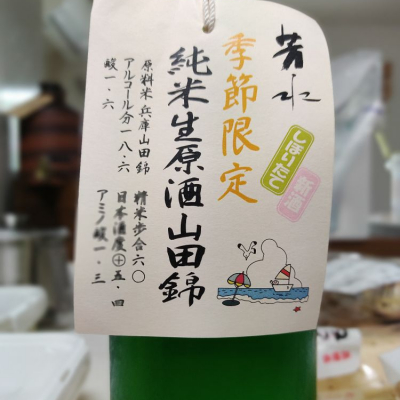 芳水
季節限定
しぼりたて
新酒
純米生原酒山田錦
原料米 兵庫山田錦
アルコール分一八・六
酸一・六
精米歩合六〇
日本酒度⊕五・四
アミノ酸一・三